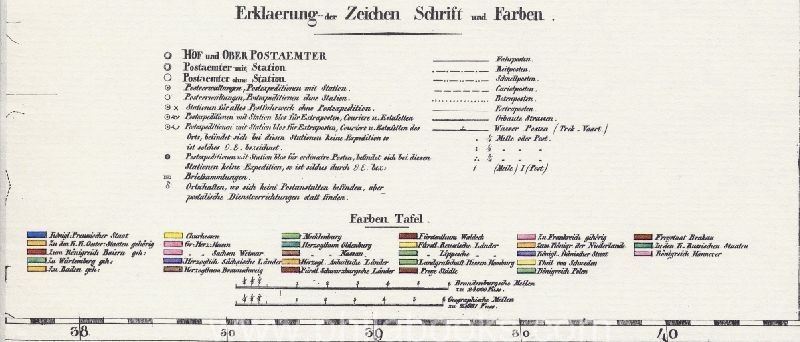 Erklaerung der Zeichen Schrift und Farben.
HOF und OBER POSTAEMTER
Postaemter mit Station
Postaemter ohne Station.
Postverwaltungen, Postexpeditionen mit Station.
Postverwaltungen, Postexpeditionen ohne Station.
Stationen für alles Postfuhrwerk ohne Postexpedition.
Postexpeditionen mit Station blos für Extraposten, Couriers u. Estafetten
Postexpeditionen mit Station blos für Extraposten, Couriers u. Estafetten des
Orts, befindet sich bei diesen Stationen keine Expedition so
ist solches O.E. bezeichnet.
Postexpeditionen mit Station blos für ordinaire Posten, befindet sich bei diesen
Stationen keine Expedition, so ist solches durch O.E. bez.
Briefsammlungen.
Ortschaften, wo sich keine Postanstalten befinden, aber
postalische Dienstverrichtungen statt finden.
Fahrposten.
Reitposten.
Schnellposten.
Cariolposten.
Botenposten.
Extraposten.
Gebaute Strassen.
Wasser Posten (Trek-Vaart)
¼ Meile oder Post.
½ " "
¾ " "
1 (Meile) 1 (Post)
Farben Tafel.
Königl. Preussischer Staat
Zu Würtemberg geh:
Zu Baden geh:
Churhessen
Gr: Herz: Hessen
" " Sachsen Weimar
Herzoglich Sächsische Länder
Herzogthum Braunschweig
Mecklenburg
Herzogthum Oldenburg
" Nassau
Herzogl. Anhaltische Länder
Fürstl. Schwarzburgsche Länder
Fürstenthum Waldeck
Fürstl. Reussische Länder
" Lippesche "
Landgrafschaft Hessen Homburg
Freie Städte
Zu Frankreich gehörig
Zum Königr. der Niederlande
Königl. Dänischer Staat
Theil von Schweden
Königreich Polen
Freystaat Krakau
Zu den K. Russischen Staaten
Königreich Hannover
Brandenburgische Meilen
zu 24000 Fuss.
Geographische Meilen
38 39 40